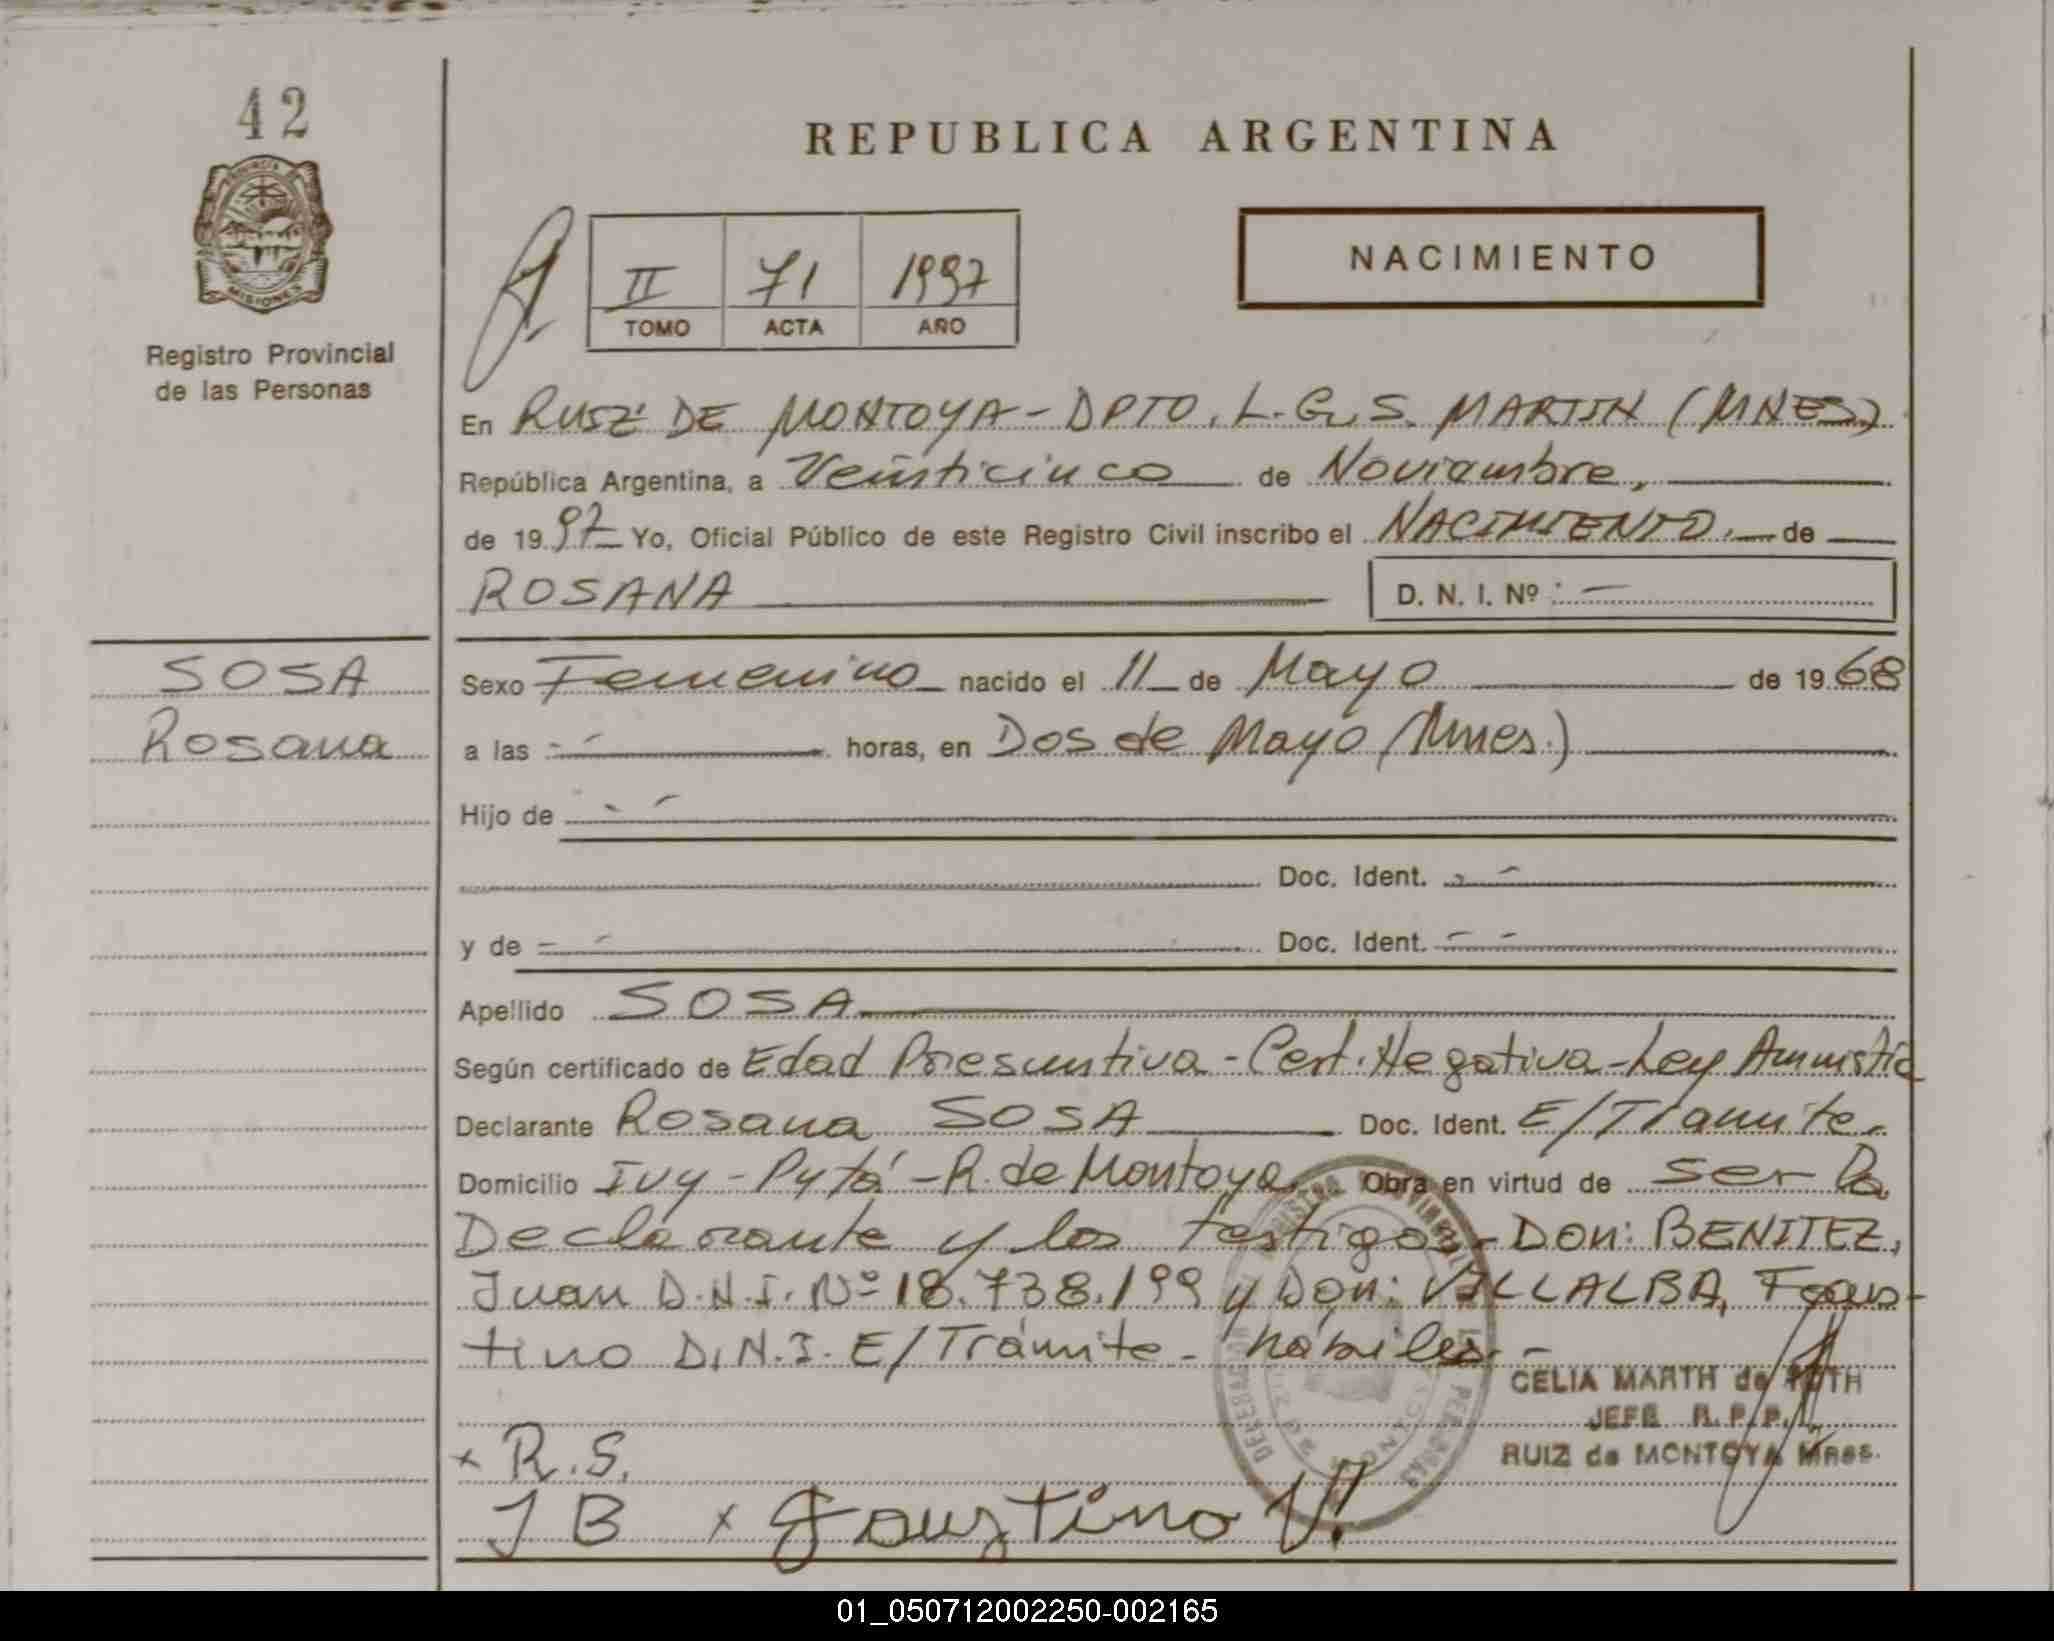 42
PROVINCIA
MISIONES
Registro Provincial
de las Personas
REPUBLICA ARGENTINA
II 71 1997
TOMO ACTA AÑO
NACIMIENTO
En RUIZ DE MONTOYA - DPTO. L.G.S. MARTIN (MNES)
República Argentina, a Veinticinco de Noviembre,
de 1997 Yo, Oficial Público de este Registro Civil inscribo el NACIMIENTO. de
ROSANA D. N. I. Nº : -
SOSA
Rosana
Sexo Femenino nacido el 11 de Mayo de 1968
a las - - horas, en Dos de Mayo (Mnes.)
Hijo de - -
Doc. Ident. - -
y de - - Doc. Ident. - -
Apellido SOSA
Según certificado de Edad Presuntiva - Cert. Negativa - Ley Amnistia
Declarante Rosana SOSA Doc. Ident. E/Tramite.
Domicilio Ivy - Pytá - R. de Montoya Obra en virtud de ser la
Declarante y los testigos - Don: BENITEZ,
Juan D.N.I. Nº 18.738.199 y Don: VILLALBA, Faus-
tino D.N.I. E/Trámite - hábiles. -
CELIA MARTH de ROTH
JEFE R.P.P.
RUIZ de MONTOYA Mnes.
x R.S.
J B x Faustino V.
01_050712002250-002165